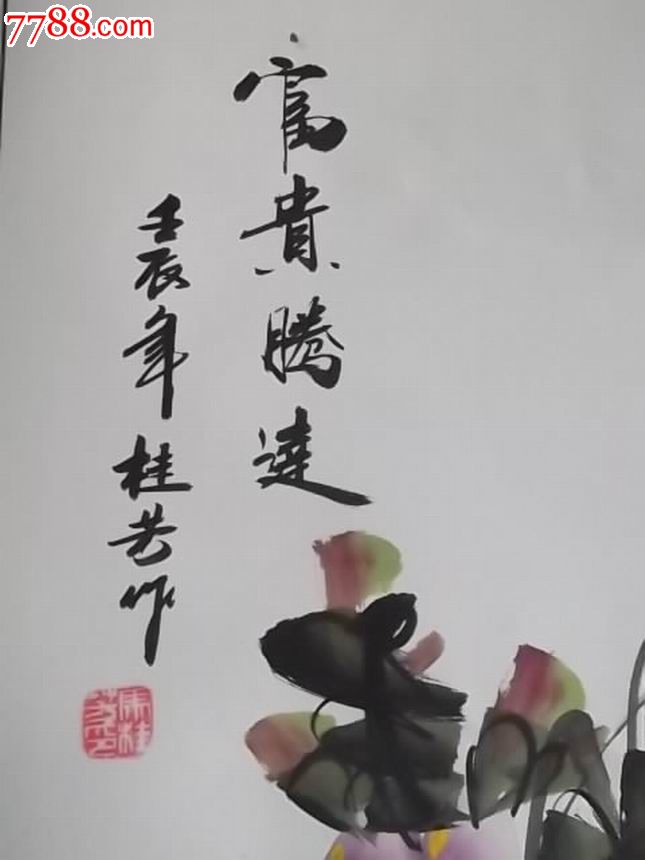 7788.com
富貴騰達
壬辰年桂芳作